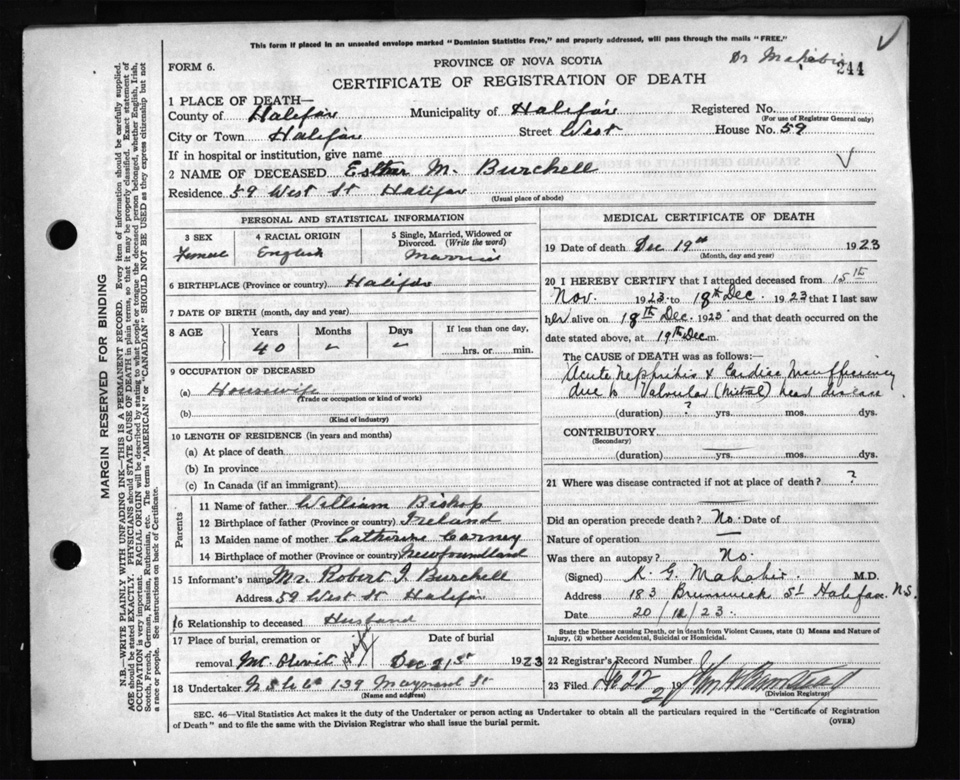 This form if placed in an unsealed envelope marked "Dominion Statistics Free," and properly addressed, will pass through the mails "FREE."
FORM 6.
PROVINCE OF NOVA SCOTIA
Dr Mahabir
244
CERTIFICATE OF REGISTRATION OF DEATH
1 PLACE OF DEATH—
County of Halifax Municipality of Halifax Registered No.
(For use of Registrar General only)
City or Town Halifax Street West House No. 59
If in hospital or institution, give name
2 NAME OF DECEASED Esther M. Burchell
Residence 59 West St Halifax
(Usual place of abode)
PERSONAL AND STATISTICAL INFORMATION
3 SEX Female
4 RACIAL ORIGIN English
5 Single, Married, Widowed or Divorced. (Write the word) Married
6 BIRTHPLACE (Province or country) Halifax
7 DATE OF BIRTH (month, day and year)
8 AGE Years 40 Months Days If less than one day,
hrs. or min.
9 OCCUPATION OF DECEASED
(a) Housewife
(Trade or occupation or kind of work)
(b)
(Kind of industry)
10 LENGTH OF RESIDENCE (in years and months)
(a) At place of death
(b) In province
(c) In Canada (if an immigrant)
Parents
11 Name of father William Bishop
12 Birthplace of father (Province or country) Ireland
13 Maiden name of mother Catherine Carney
14 Birthplace of mother (Province or country) Newfoundland
15 Informant's name Mr. Robert J. Burchell
Address 59 West St Halifax
16 Relationship to deceased Husband
17 Place of burial, cremation or removal Mt. Olivit Halifax Date of burial Dec 21st 1923
18 Undertaker 139 Maynard St
(Name and address)
MEDICAL CERTIFICATE OF DEATH
19 Date of death Dec 19th 1923
(Month, day and year)
20 I HEREBY CERTIFY that I attended deceased from 15th
Nov. 1923 to 18th Dec. 1923 that I last saw
her alive on 18th Dec. 1923 and that death occurred on
date stated above, at 19th Dec m.
The CAUSE OF DEATH was as follows:
Acute Nephritis & Cardiac Insufficiency
due to Valvular (Mitral) heart disease.
(duration) ? yrs. mos. dys.
CONTRIBUTORY
(Secondary)
(duration) yrs. mos. dys.
21 Where was disease contracted if not at place of death? ?
Did an operation precede death? No. Date of
Nature of operation —
Was there an autopsy? No.
(Signed) K. G. Mahabir. M.D.
Address 183 Brunswick St Halifax N.S.
Date 20/12/23.
State the Disease causing Death, or in death from Violent Causes, state (1) Means and Nature of Injury, (2) whether Accidental, Suicidal or Homicidal.
22 Registrar's Record Number
23 Filed 22 19
(Division Registrar)
SEC. 46—Vital Statistics Act makes it the duty of the Undertaker or person acting as Undertaker to obtain all the particulars required in the "Certificate of Registration of Death" and to file the same with the Division Registrar who shall issue the burial permit.
(OVER)
MARGIN RESERVED FOR BINDING
N.B.—WRITE PLAINLY WITH UNFADING INK—THIS IS A PERMANENT RECORD. Every item of information should be carefully supplied.
AGE should be stated EXACTLY. PHYSICIANS should STATE CAUSE OF DEATH in plain terms, so that it may be properly classified. Exact statement of
OCCUPATION is very important. RACIAL ORIGIN will be described by stating to what people or tongue the deceased person belonged, whether English, Irish,
Scotch, French, German, Russian, Ruthenian, etc. The terms "AMERICAN" or "CANADIAN" SHOULD NOT BE USED as they express citizenship but not
a race or people. See instructions on back of Certificate.